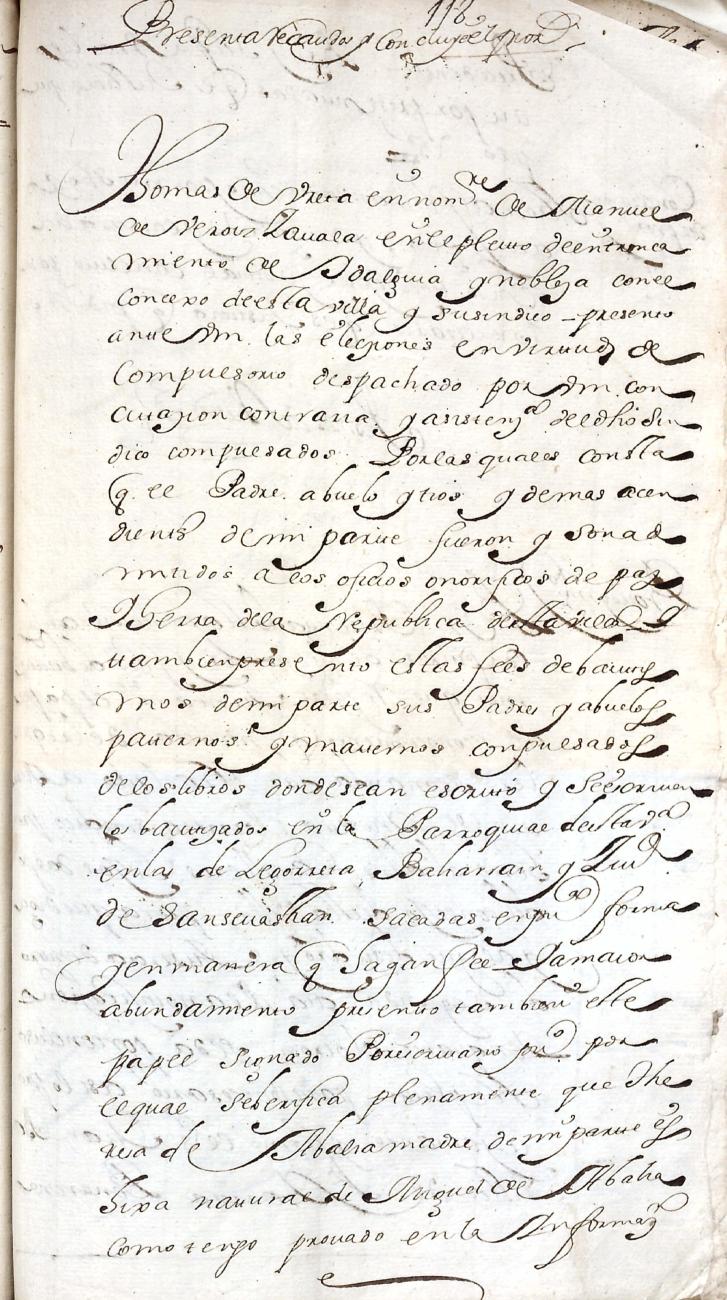 118
Presenta recaudos y Concluye el por
Thomas de Vreta en nomre de Manuel
de Veroiz Zavala en el pleitto de entronca
miento de Ydalguia y nobleza con el
Concexo de esta villa y su sindico — presento
antte Vm. las elecziones en virttud de
Compulsorio despachado por Vm. con
cittazion contraria, y asistenza del dho Sin
dico compulsados. Por las quales consta
q. el Padre abuelo y tios y demas acen
dientes de mi partte fueron y son ad
mitidos a los ofizios onorificos de paz
y Gerra de la Republica de esta villa Y
ttambien presento estas fees de bauttis
mos de mi parte sus Padres y abuelos
patternos y matternos compulsados
de los libros donde se an escritto y se escriven
los bauttizados en la Parroquial de esta va
en las de Legorreta, Baliarrain y Ziud
de San Sevasttian. Sacadas en pu.co forma
y en manera q hagan fee — Y a maior
abundamiento presento tambien este
papel signado Por escrivano puo por
el qual se berifica plenamente que The
resa de Abalia madre de mi partte es
hixa natural de Miguel de Abalia
como tengo provado en la Informazn